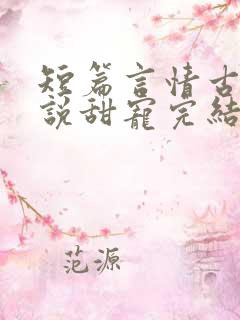 短篇言情古
說甜寵完結
范源